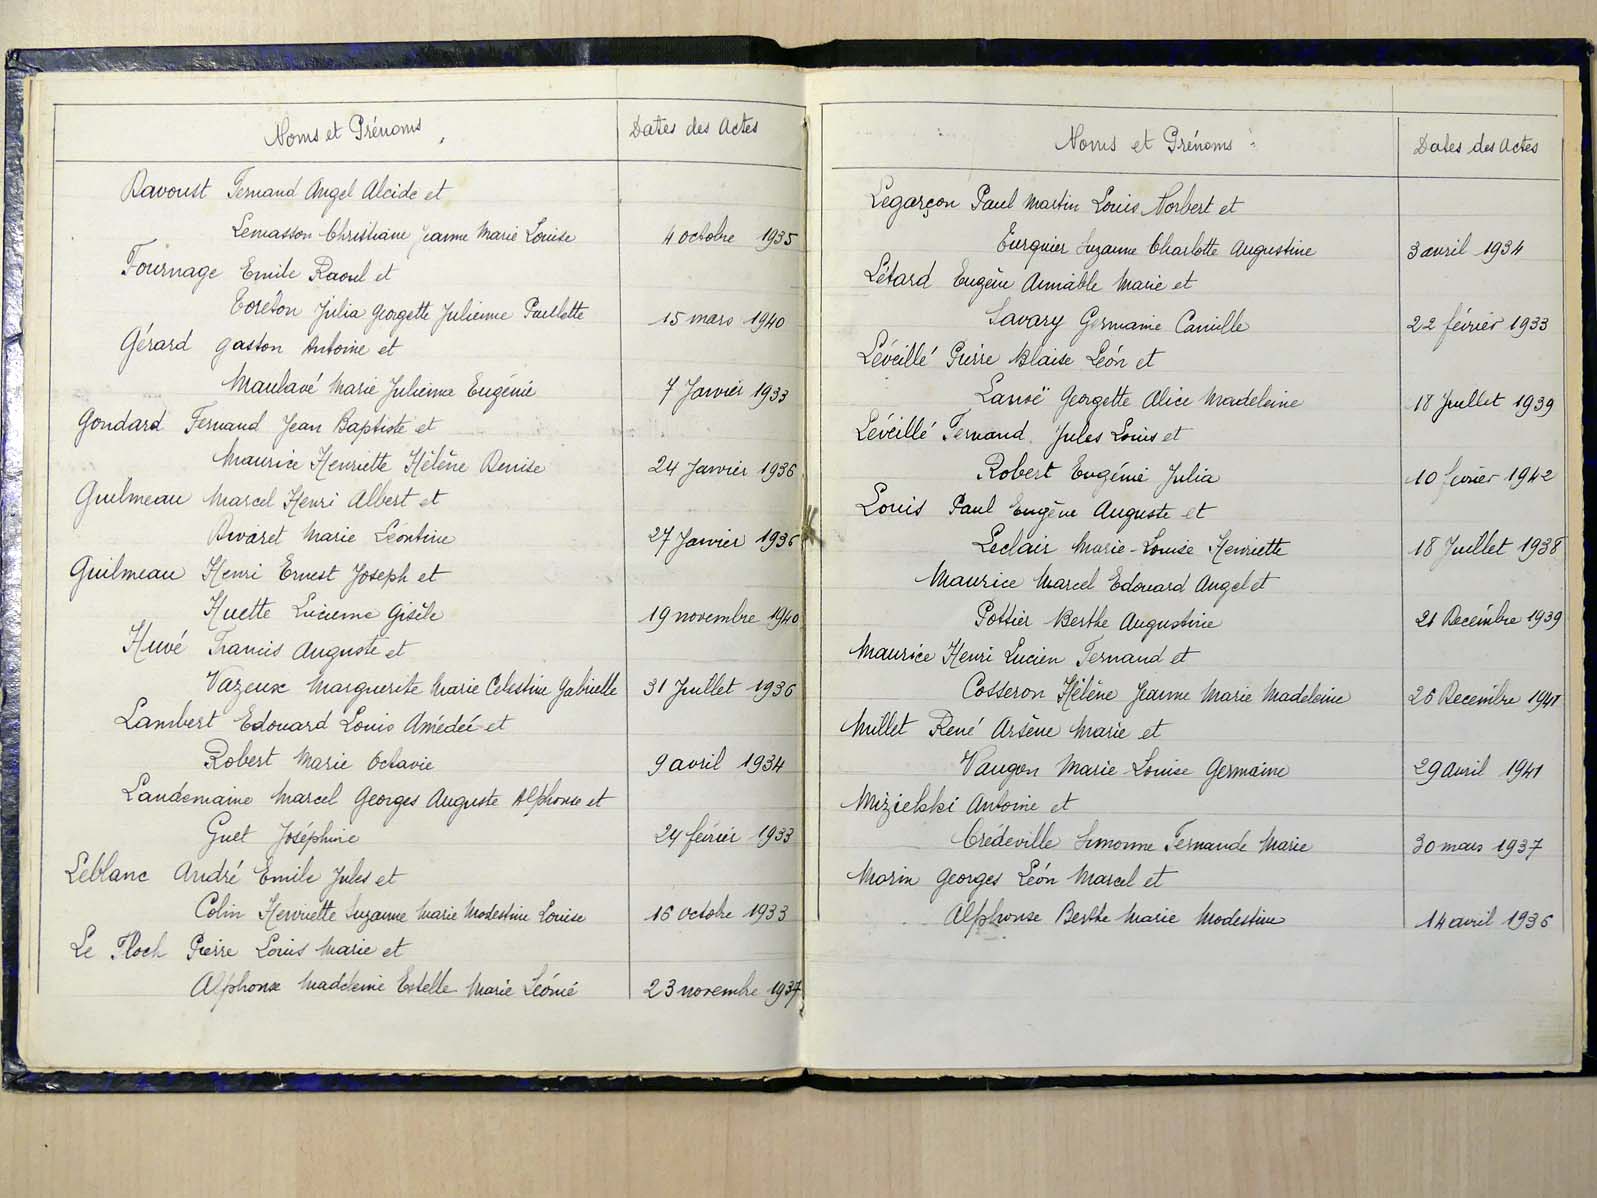 Noms et Prénoms
Dates des Actes
Davoust Fernand Angel Alcide et
Lemasson Christiane Jeanne Marie Louise 4 octobre 1935
Fournage Emile Raoul et
Coreton Julia Georgette Julienne Paulette 15 mars 1940
Gérard Gaston Antoine et
Maulavé Marie Julienne Eugénie 7 Janvier 1933
Gondard Fernand Jean Baptiste et
Maurice Henriette Hélène Denise 24 Janvier 1936
Guilmeau Marcel Henri Albert et
Marie Léontine 27 Janvier 1936
Guilmeau Henri Ernest Joseph et
Huette Lucienne Gisèle 19 novembre 1940
Huvé Francis Auguste et
Vazeux Marguerite Marie Celestine Gabrielle 31 Juillet 1936
Lambert Edouard Louis Amédée et
Robert Marie Octavie 9 avril 1934
Landemaine Marcel Georges Auguste Alphonse et
Guet Joséphine 24 février 1933
Leblanc André Emile Jules et
Colin Henriette Suzanne Marie Modestine Louise 16 octobre 1933
Le Floch Pierre Louis Marie et
Alphonse Madeleine Estelle Marie Léonie 23 novembre 1937
Noms et Prénoms
Dates des Actes
Legarçon Paul Martin Louis Norbert et
Suzanne Charlotte Augustine 3 avril 1934
Létard Eugène Aimable Marie et
Savary Germaine Camille 22 février 1933
Léveillé Pierre Blaise Léon et
Lanoë Georgette Alice Madeleine 18 Juillet 1939
Léveillé Fernand Jules Louis et
Robert Eugénie Julia 10 février 1942
Louis Paul Eugène Auguste et
Leclair Marie-Louise Henriette 18 Juillet 1938
Maurice Marcel Edouard Angel et
Pottier Berthe Augustine 21 Décembre 1939
Maurice Henri Lucien Fernand et
Cosseron Hélène Jeanne Marie Madeleine 26 Décembre 1941
Millet René Arsène Marie et
Vaugon Marie-Louise Germaine 29 avril 1941
Antoine et
Crédeville Simonne Fernande Marie 30 mars 1937
Morin Georges Léon Marcel et
Alphonse Berthe Marie Modestine 14 avril 1936